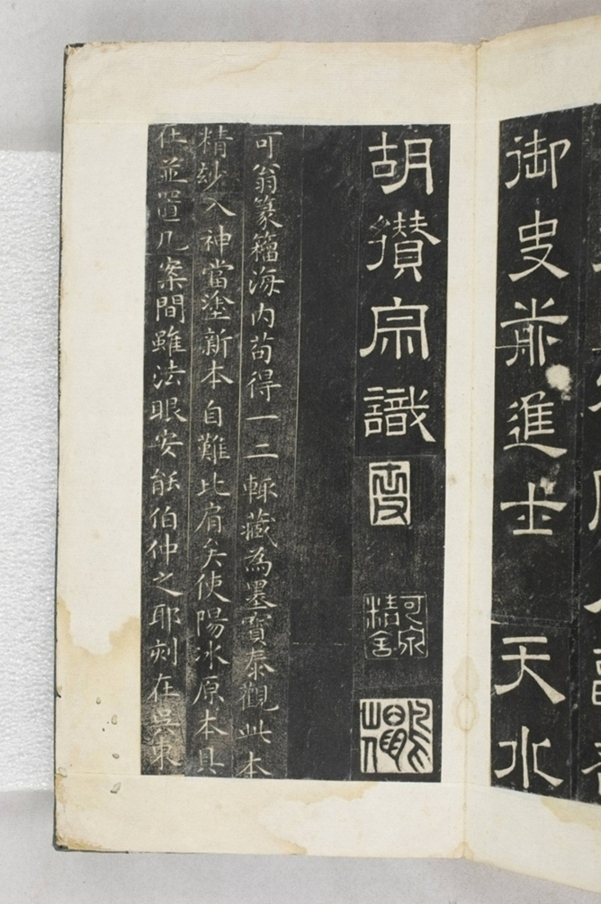 御史前進士 天水
胡纘宗識
可翁篆籀海内苟得一二輙藏為墨寳泰觀此本
精玅入神當塗新本自難比肩矣使陽冰原本具
在並置几案間雖法眼安能伯仲之耶刻在吳東